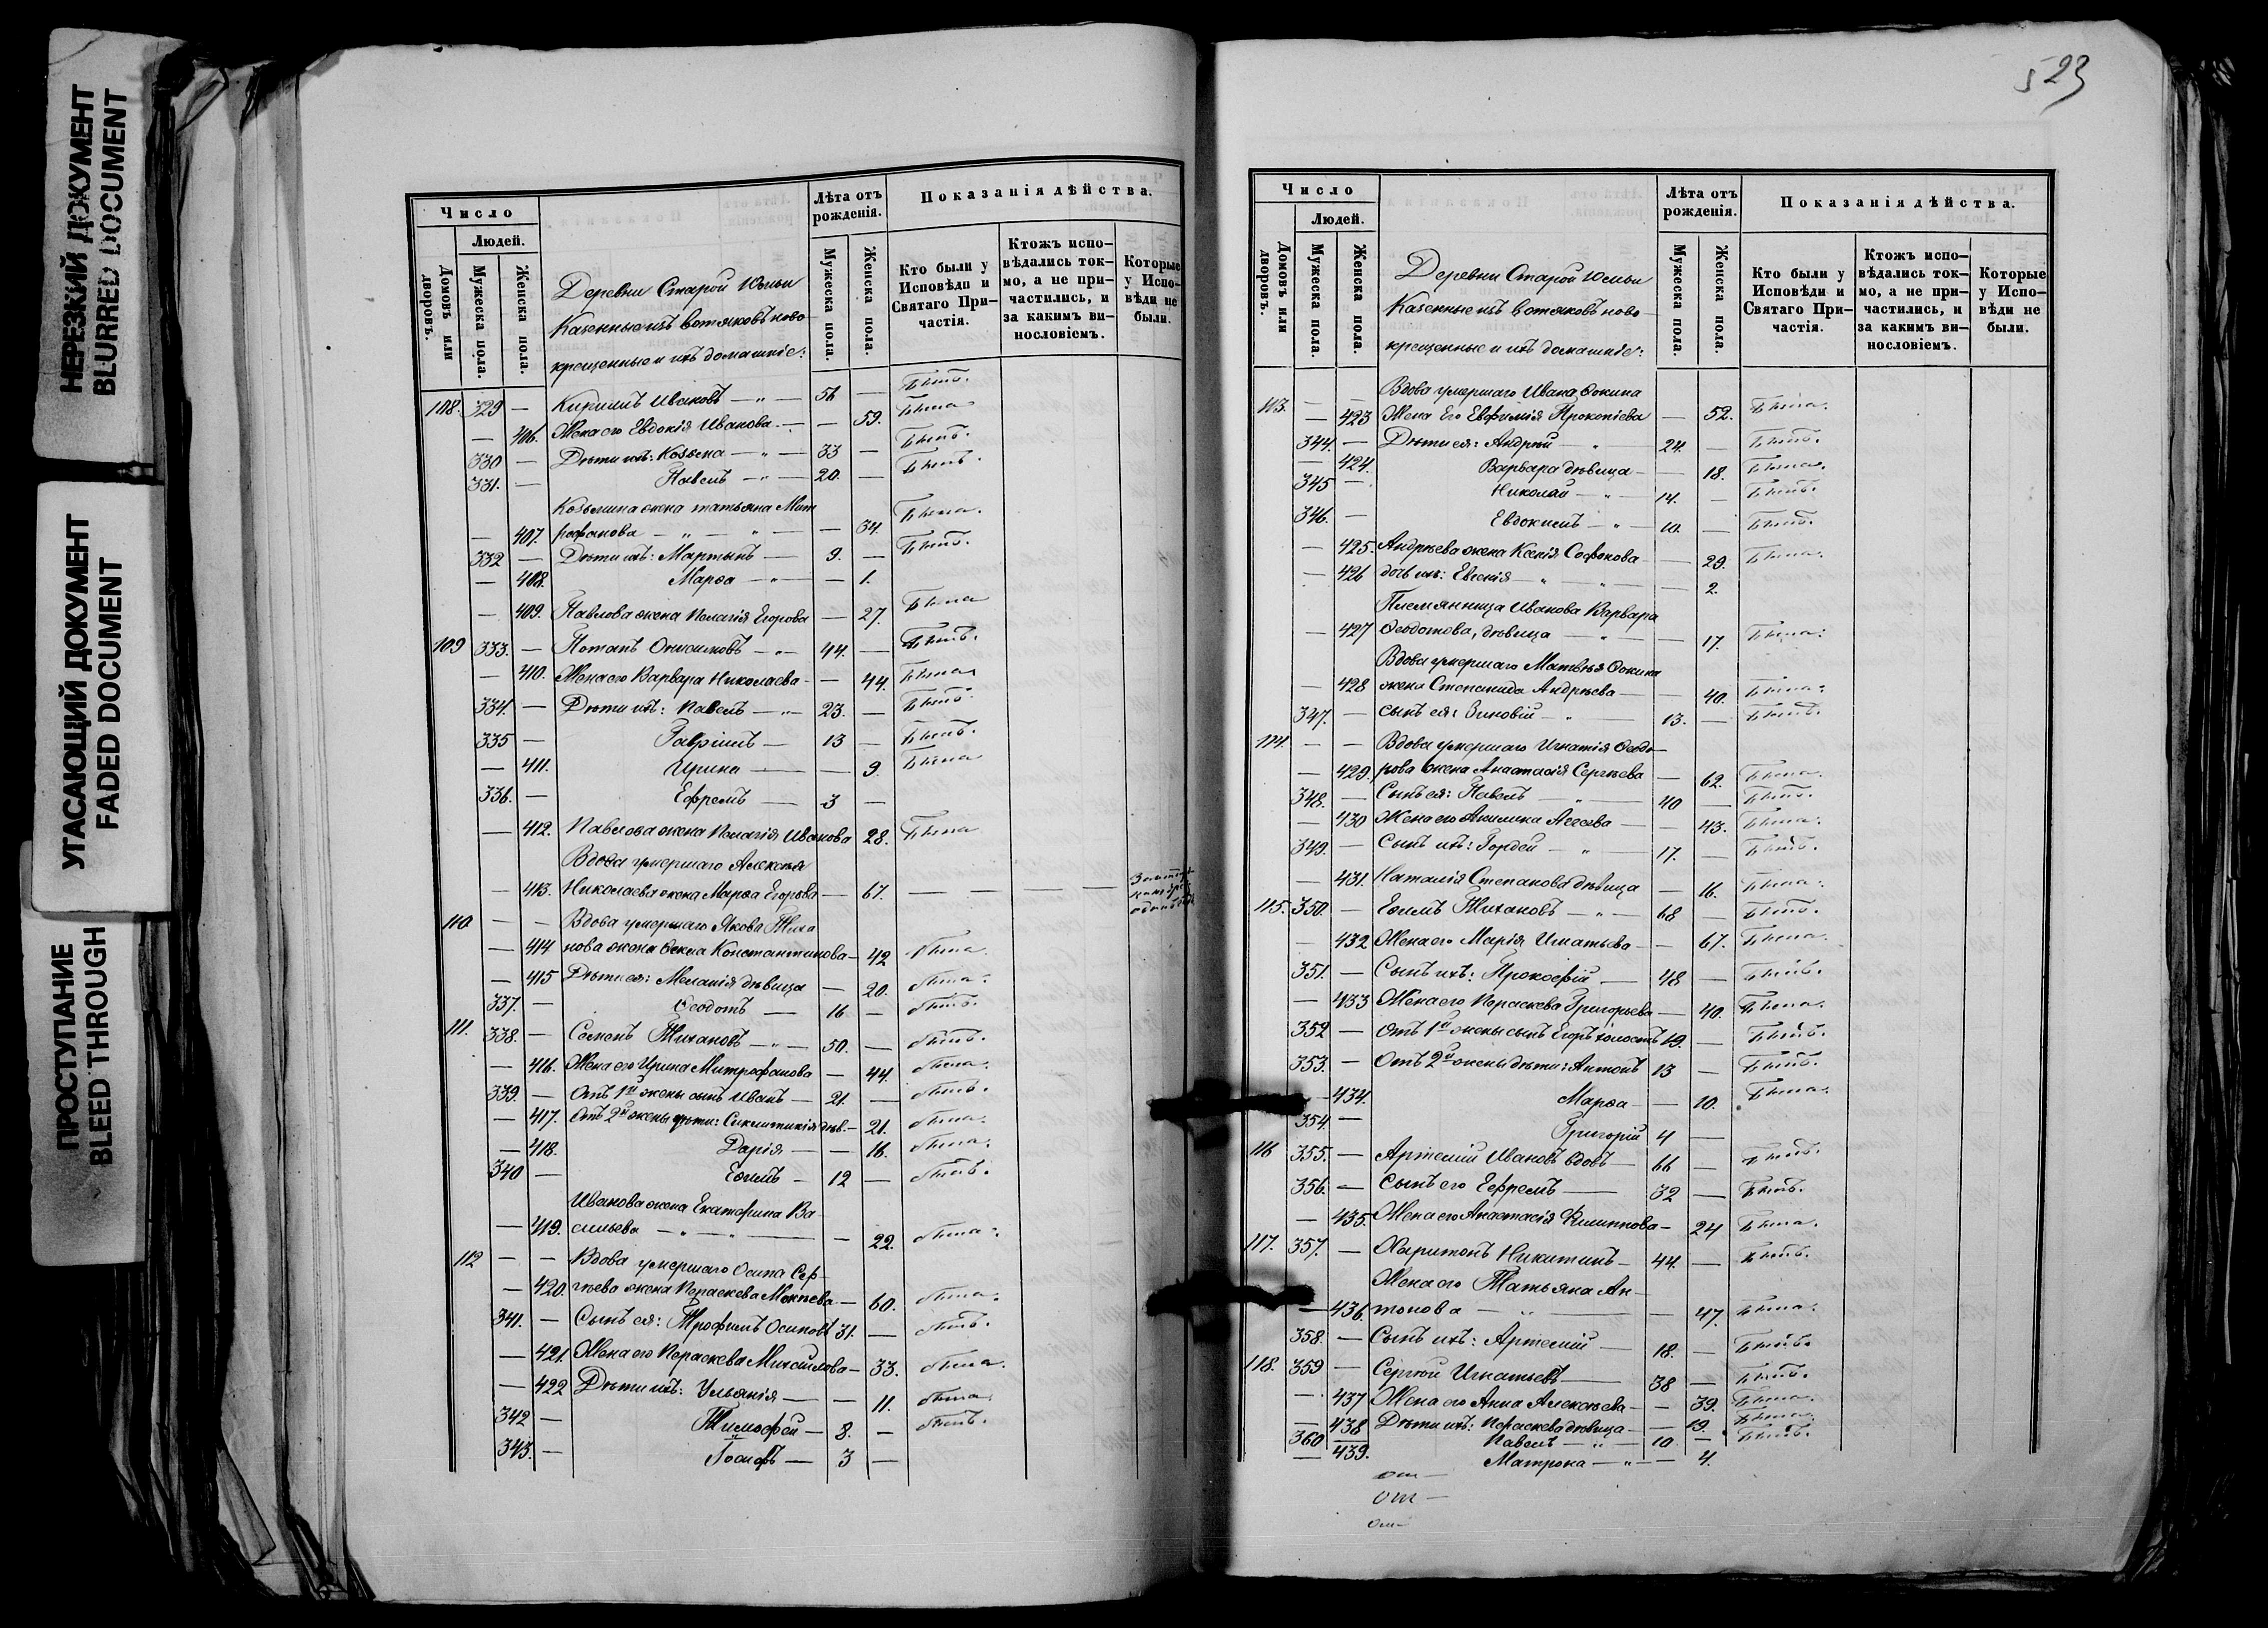 НЕРЕЗКИЙ ДОКУМЕНТ
BLURRED DOCUMENT
УГАСАЮЩИЙ ДОКУМЕНТ
FADED DOCUMENT
ПРОСТУПАНИЕ
BLEED THROUGH
Число
Людей.
Домовъ или дворовъ.
Мужеска пола.
Женска пола.
Деревни Старой Юмьи
Казенные изъ вотяковъ ново
крещенные и ихъ домашніе:
Лѣта отъ рожденія.
Мужеска пола.
Женска пола.
Показанія дѣйства.
Кто были у Исповѣди и Святаго Причастія.
Ктожъ исповѣдались токмо, а не причастились, и за какимъ винословіемъ.
Которые у Исповѣди не были.
108. 329 — Кирилъ Ивановъ — 56 — Былъ.
— 406. Жена его Евдокія Иванова — — 59. Была
330 — Дѣти ихъ: Козьма — 33 — Былъ.
331. — Павелъ — 20. — Былъ.
Козьмина жена татьяна Мит
— 407. рофанова — — 34. Была.
332 — Дѣти ихъ: Мартынъ — 9. — Былъ.
— 408. Марѳа — — 1.
— 409. Павлова жена Пелагія Егорова — 27. Была
109 333. — Потапъ Онисимовъ — 44. — Былъ.
— 410. Жена его Варвара Николаева — — 44. Была
334. — Дѣти ихъ: Павелъ — 23. — Былъ
335 — Гавріилъ — 13 — Былъ.
— 411. Ирина — — 9. Была
336. — Ефремъ — 3 —
— 412. Павлова жена Пелагія Иванова 28. Была
Вдова умершаго Алексѣя
— 413. Николаева жена Марѳа Егорова — 67. — — — —
110 — — Вдова умершаго Якова Тиха
— 414 нова жена Ѳекла Константинова — 42 была.
— 415 Дѣти ея: Меланія дѣвица — 20. была.
337. — Ѳеодотъ — 16 — былъ.
111. 338. — Семенъ Тихановъ — 50. — былъ.
— 416. Жена его Ирина Митрофанова — 44. была.
339. — Отъ 1й жены сынъ Иванъ — 21. — былъ.
— 417. Отъ 2й жены дѣти: Сиклитикія дѣв. — 21. была.
— 418. Дарія — — 16. была.
340 — Ефимъ — 12 — былъ.
Иванова жена Екатерина Ва
— 419. сильева — — 22. была.
112 — — Вдова умершаго Осипа Сер
— 420. гѣева жена Параскева Мокѣева — 60. была.
341. — Сынъ ея: Трофимъ Осиповъ 31. — былъ.
— 421. Жена его Параскева Михайлова — 33. была.
— 422 Дѣти ихъ: Ульянія — — 11. была.
342 — Тимофей — 8. — былъ.
343. — Іосифъ — 3 —
523
Число
Людей.
Домовъ или дворовъ.
Мужеска пола.
Женска пола.
Деревни Старой Юмьи
Казенные изъ вотяковъ ново
крещенные и ихъ домашніе:
Лѣта отъ рожденія.
Мужеска пола.
Женска пола.
Показанія дѣйства.
Кто были у Исповѣди и Святаго Причастія.
Ктожъ исповѣдались токмо, а не причастились, и за какимъ винословіемъ.
Которые у Исповѣди не были.
113. — — Вдова умершаго Ивана Ѳокина
— 423 Жена Его Евфимія Прокопіева — 52. Была.
344. — Дѣти ея: Андрей — 24. — Былъ.
— 424. Варвара дѣвица — — 18. Была.
345 — Николай — 14. — Былъ.
346. — Евдокимъ — 10. — Былъ.
— 425. Андрѣева жена Ксенія Софонова — 29. Была.
— 426 дочь ихъ: Евгенія — — 2.
Племянница Иванова Варвара
— 427 Ѳеодотова, дѣвица — — 17. Была.
Вдова умершаго Матвѣя Ѳокина
— 428 жена Степанида Андрѣева — — 40. Была.
347. — Сынъ ея: Зиновій — 13. — Былъ.
114. — — Вдова умершаго Игнатія Ѳеодо—
— 429. рова жена Анастасія Сергѣева — 62. Была.
348. — Сынъ ея: Павелъ — 40 — Былъ.
— 430 Жена его Акилина Агеева — — 43. Была.
349. — Сынъ ихъ: Гордей — 17. — Былъ.
— 431. Наталія Степанова дѣвица — 16. Была.
115. 350. — Ефимъ Тихановъ — 68 — Былъ.
— 432 Жена его Марія Игнатьева — — 67. Была.
351. — Сынъ ихъ: Прокофій — 48 — Былъ.
— 433 Жена его Параскева Григорьева — 40. Была.
352 — Отъ 1й жены сынъ Егоръ холостъ 19. — Былъ.
353. — Отъ 2й жены дѣти: Антонъ 13 — Былъ.
— 434. Марѳа — — 10. Была.
354. — Григорій 4 —
116 355. — Артемій Ивановъ вдовъ — 66 — Былъ.
356. — Сынъ его Ефремъ — 32 — Былъ.
— 435. Жена его Анастасія Филиппова — 24 Была.
117. 357. — Харитонъ Никитинъ — 44. — Былъ.
Жена его Татьяна Ан—
— 436. тонова — — 47. Была.
358. — Сынъ ихъ: Артемій — 18. — Былъ.
118. 359 — Сергѣй Игнатьевъ — 38 — Былъ.
— 437 Жена его Анна Алексѣева — — 39. Была.
— 438 Дѣти ихъ: Параскева дѣвица — — 19. Была.
360 — Павелъ — 10 — Былъ.
— 439. Матрона — — 4.